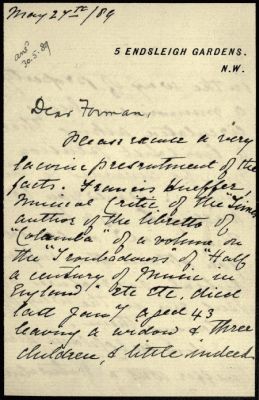 May 27th/89
ansd
30.5.89
5 ENDSLEIGH GARDENS.
N.W.
Dear Forman,
Please excuse a very
laconic presentment of the
facts. Francis Hueffer,
Musical Critic of the Times,
author of the libretto of
"Colomba" of a volume on
the "Troubadours" of "Half
a century of Music in
England" etc etc, died
last Jany aged 43
leaving a widow & three
children, & little indeed